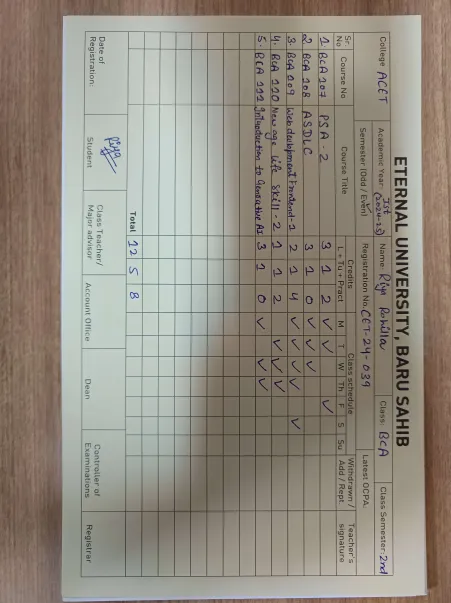 ETERNAL UNIVERSITY, BARU SAHIB
College ACET Academic Year: Ist (2024-25) Name Riya Rohilla Class: BCA Class Semester: 2nd
Semester (Odd / Even) ✓ Registration No. CET-24-039 Latest OCPA:
Sr. No Course No Course Title Credits Class schedule Withdrawn / Add / Rept. Teacher's signature
L + Tu + Pract M T W Th F S Su
1. BCA 107 PSA - 2 3 1 2 ✓ ✓ ✓
2 BCA 108 ASDLC 3 1 0 ✓ ✓ ✓
3. BCA 109 Web development Frontend-1 2 1 4 ✓ ✓ ✓ ✓
4. BCA 110 New age life skill - 2 1 1 2 ✓ ✓ ✓
5. BCA 111 Introduction to Generative AI 3 1 0 ✓ ✓ ✓
Total 12 5 8
Riya
Date of Registration: Student Class Teacher/ Major advisor Account Office Dean Controller of Examinations Registrar